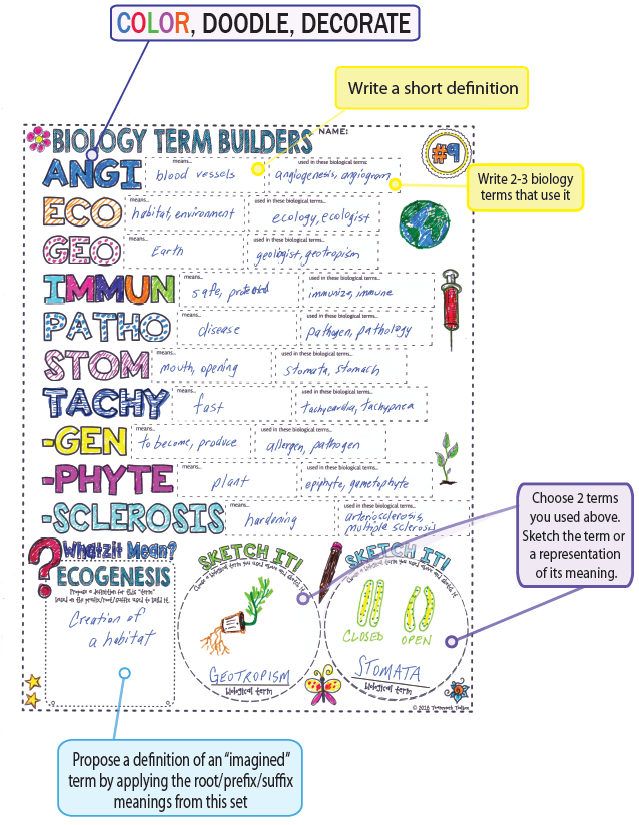 COLOR, DOODLE, DECORATE
Write a short definition
BIOLOGY TERM BUILDERS NAME:
#9
ANGI means... blood vessels used in these biological terms: angiogenesis, angiogram
Write 2-3 biology
terms that use it
ECO means... habitat, environment used in these biological terms... ecology, ecologist
GEO means... Earth used in these biological terms... geologist, geotropism
IMMUN means... safe, protected used in these biological terms... immunize, immune
PATHO means... disease used in these biological terms... pathogen, pathology
STOM means... mouth, opening used in these biological terms... stomata, stomach
TACHY means... fast used in these biological terms... tachycardia, tachypnea
-GEN means... to become, produce used in these biological terms... allergen, pathogen
-PHYTE means... plant used in these biological terms... epiphyte, gametophyte
-SCLEROSIS means... hardening used in these biological terms... arteriosclerosis,
multiple sclerosis
Choose 2 terms
you used above.
Sketch the term or
a representation
of its meaning.
? Whatzit Mean?
ECOGENESIS
Propose a definition for this "term"
based on the prefix/root/suffix used to build it.
Creation of
a habitat
SKETCH IT!
Choose a biological term you used above and sketch it.
GEOTROPISM
biological term
SKETCH IT!
Choose a biological term you used above and sketch it.
CLOSED OPEN
STOMATA
biological term
© 2016
Propose a definition of an "imagined"
term by applying the root/prefix/suffix
meanings from this set